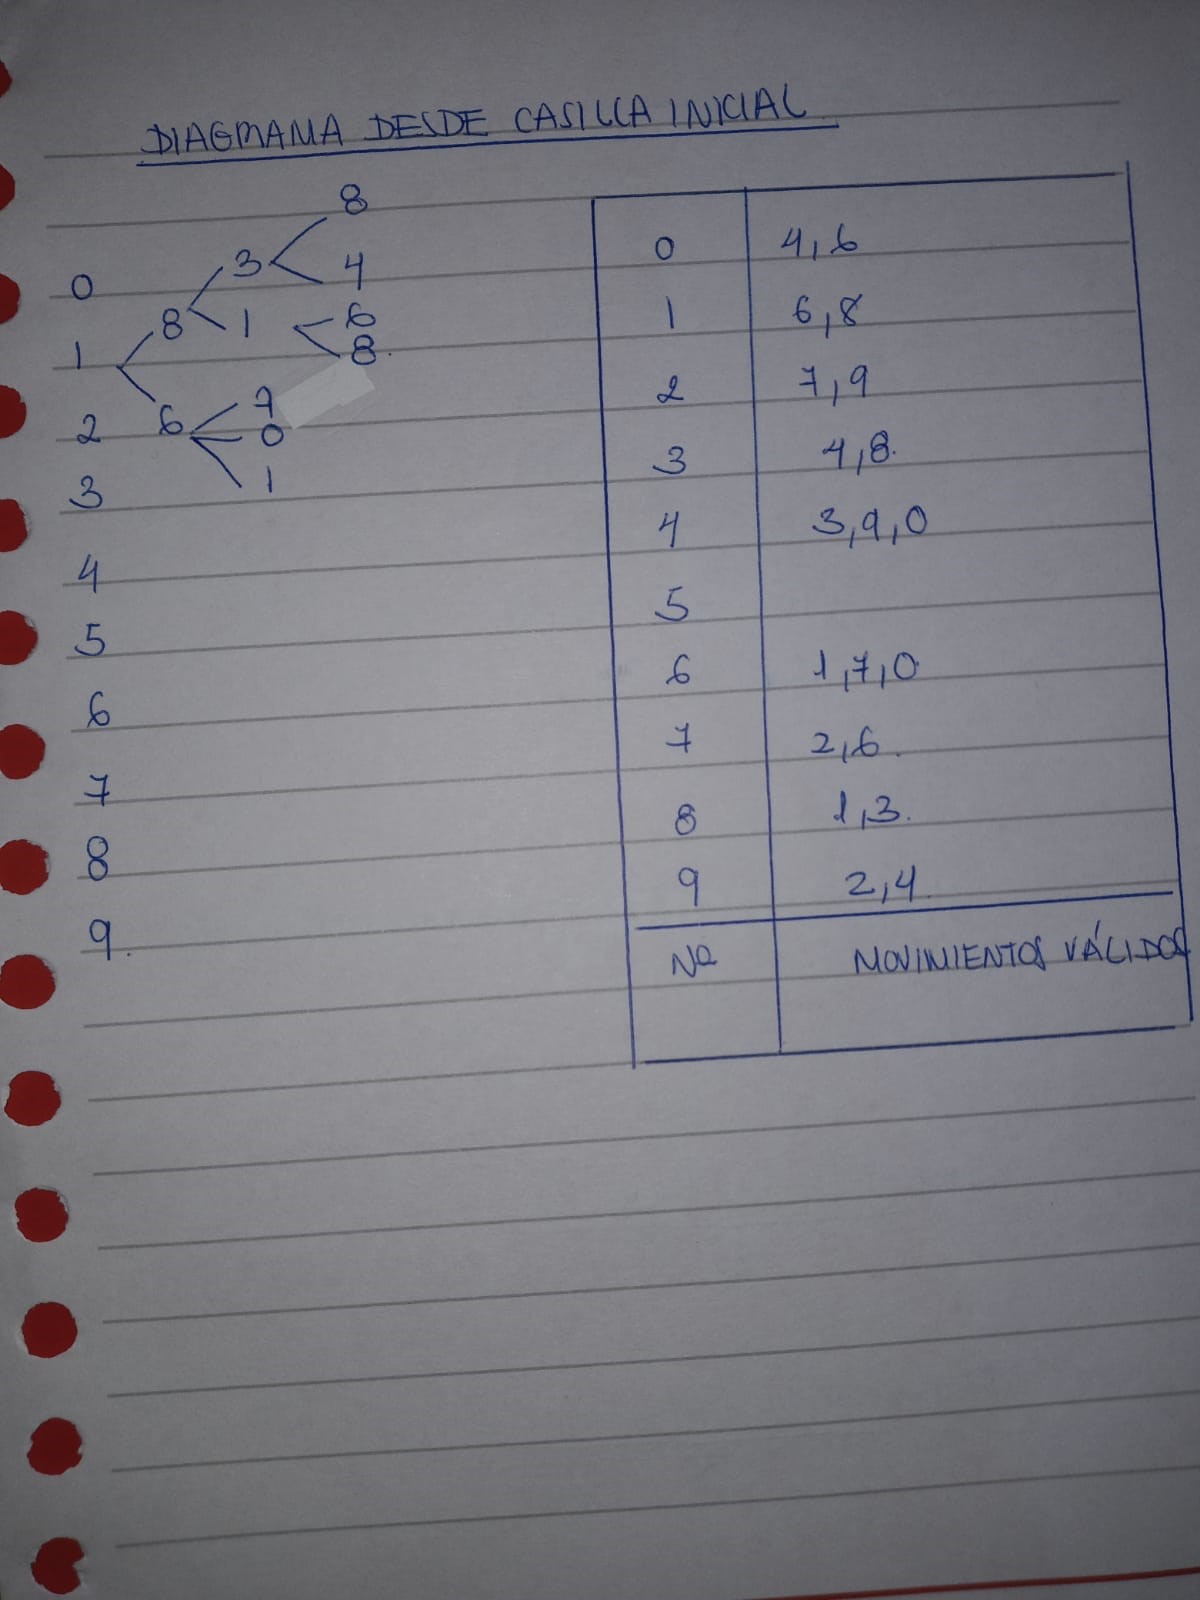 DIAGRAMA DESDE CASILLA INICIAL
8
3
4
0
8
1
6
1
8.
7
2
6
0
3
1
4
5
6
7
8
9.
0 4,6
1 6,8
2 7,9
3 4,8.
4 3,9,0
5
6 1,7,0
7 2,6.
8 1,3.
9 2,4.
Nº MOVIMIENTOS VÁLIDOS